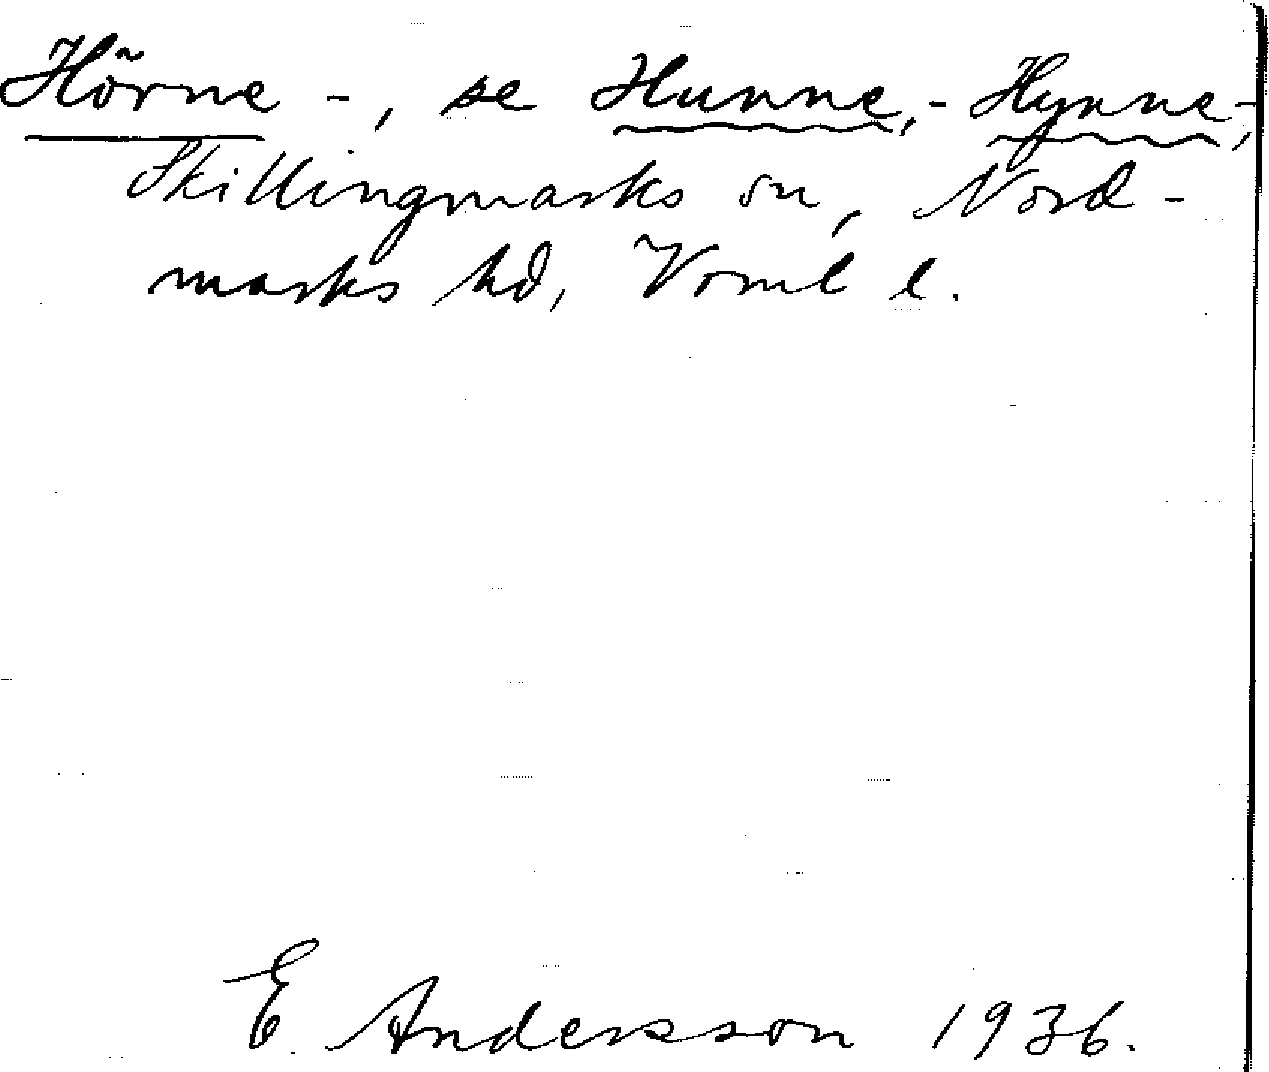 Hörne -, se Hunne,- Hynne-,
Skillingmarks sn, Nord-
marks hd, Vrml l.
E. Andersson 1936.